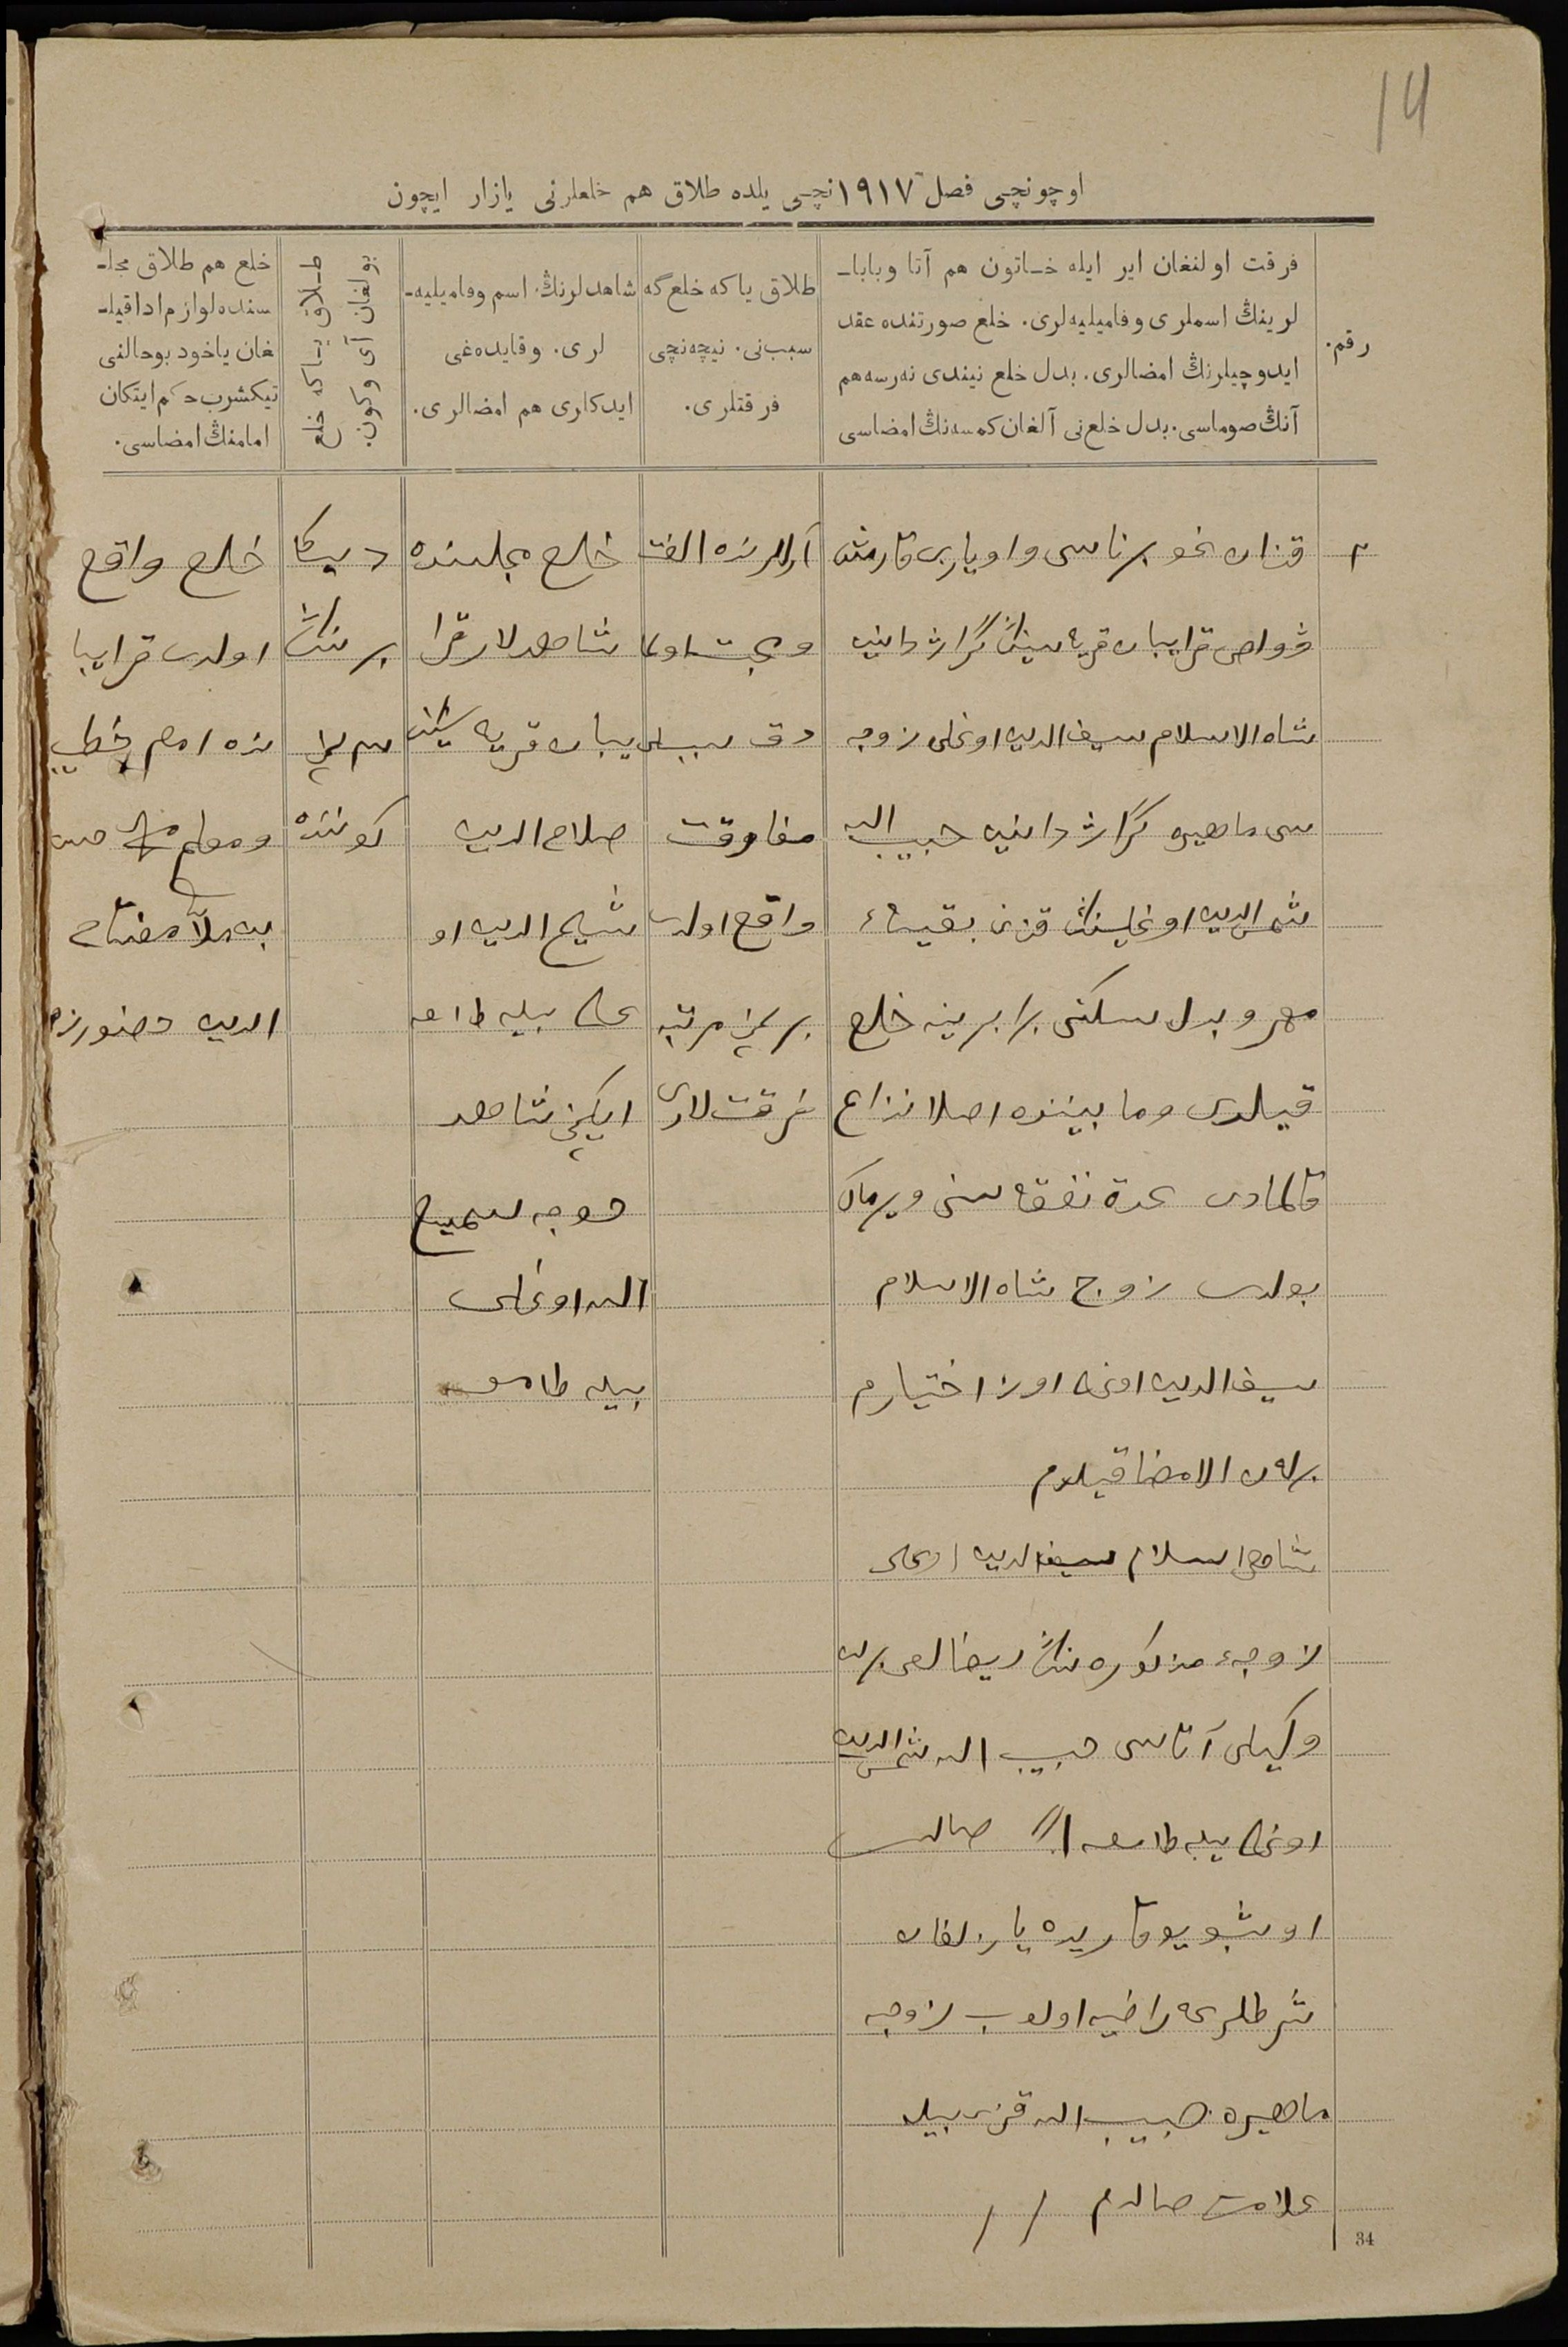 14
اوچونچی فصل ۱۹۱۷ نچی یلده طلاق هم خلعلرنی یازار ایچون
رقم.
فرقت اولنغان ایر ایله خاتون هم آتا وبابا-
لرینڭ اسملری وفامیلیه‌لری. خلع صورتنده عقد
ایدوچیلرنڭ امضالری. بدل خلع نیندی نه‌رسه هم
آنڭ صوماسی. بدل خلع‌نی آلغان کمسه‌نڭ امضاسی
طلاق یا که خلع گه
سبب‌نی. نیچه‌نچی
فرقتلری.
شاهدلرنڭ اسم وفامیلیه-
لری. وقایده‌غی
ایدکاری هم امضالری.
طلاق یا که خلع
بولغان آی وکون.
خلع هم طلاق مجل-
سنده لوازم ادا قیل-
غان یاخود بو حالنی
تیکشرب حکم ایتکان
امامنڭ امضاسی.
۲
قزان غوبرناسی واویازی قارمش
ۋولصی قراییبان قریه‌سینڭ کراژدانینی
شاه الاسلام سیف الدین اوغلی زوجه
سی ماهیره کراژدانینه حبیب الله
شمس الدین اوغلینڭ قزی بقیهء
مهر وبدل سکنی برابرینه خلع
قیلدی ومابینده اصلا نزاع
قالمادی عدة نفقه‌سنی ویرماک
بولدی زوج شاه الاسلام
سیف الدین اوغلی اوز اختیارم
برلان الامضا قیلدم
شاه اسلام سیف الدین اوغلی
زوجهء مذکوره‌نڭ ریضالغی برله
وکیلی آتاسی حبیب الله شمس الدین
اوغلی بیله طامغا صالدی
اوشبو یوقاریده یازلغان
شرطلرغه راضیه اولوب زوجه
ماهیره حبیب الله قزی بیله
علامت صالدم
آرالرنده الفت
ومحبت اولما
دق سببلی
مفارقت
واقع اولدی
برنچی مرتبه
فرقت‌لاری
خلع مجلسنده
شاهدلار قرا
ییبان قریه‌سینڭ
صلاح الدین
شیخ الدین او
غلی بیله طامغا
ایکنچی شاهد
خوجه سمیع
الله اوغلی
بیله طامغا
دیکا
برنڭ
کوننده
خلع واقع
اولدی قراییبا
نده امام خطیب
ومعلم
بن ملا مفتاح
الدین حضورنده
34